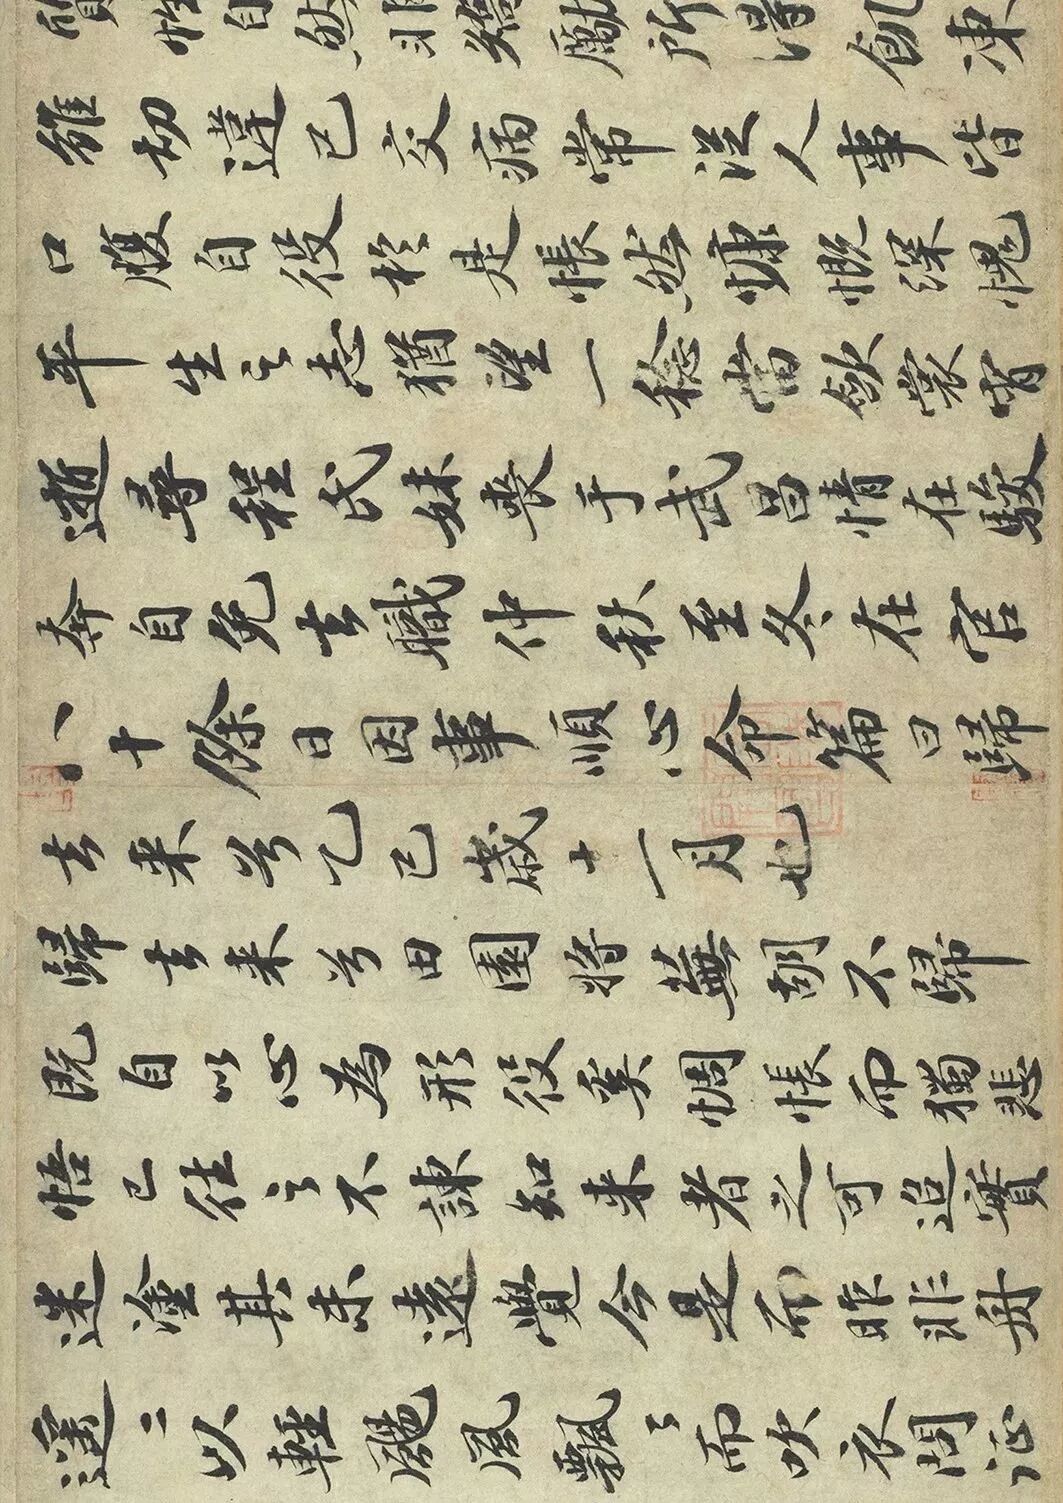 質性自然非矯厲所得飢凍
雖切違己交病常從人事皆
口腹自役於是悵然慷慨深愧
平生之志猶望一稔當斂裳宵
逝尋程氏妹喪于武昌情在駿
奔自免去職仲秋至冬在官
八十餘日因事順心命篇曰歸
去来兮乙巳歲十一月也
歸去来兮田園將蕪胡不歸
既自以心為形役奚惆悵而獨悲
悟已往之不諫知来者之可追實
迷塗其未遠覺今是而昨非舟
遥〻以輕颺風飄〻而吹衣問征